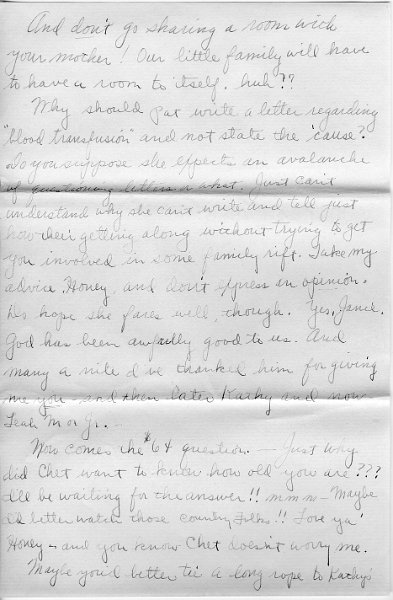 And don't go sharing a room with
your mother! Our little family will have
to have a room to itself. huh??
Why should Pat write a letter regarding
"blood transfusion" and not state the cause?
Do you suppose she expects an avalanche
of questioning letters or what. Just can't
understand why she can't write and tell just
how their getting along without trying to get
you involved in some family rift. Take my
advice, Honey, and don't express an opinion.
Les hope she fares well, though. Yes, Janie.
God has been awfully good to us. And
many a nite I've thanked him for giving
me you and then later Kathy and now
Leah M or Jr. –
Now comes the $64 question. — Just why
did Chet want to know how old you are???
I'll be waiting for the answer!! mmm – Maybe
I'd better watch those country folks!! Love ya'
Honey – and you know Chet doesn't worry me.
Maybe you'd better tie a long rope to Kathy's